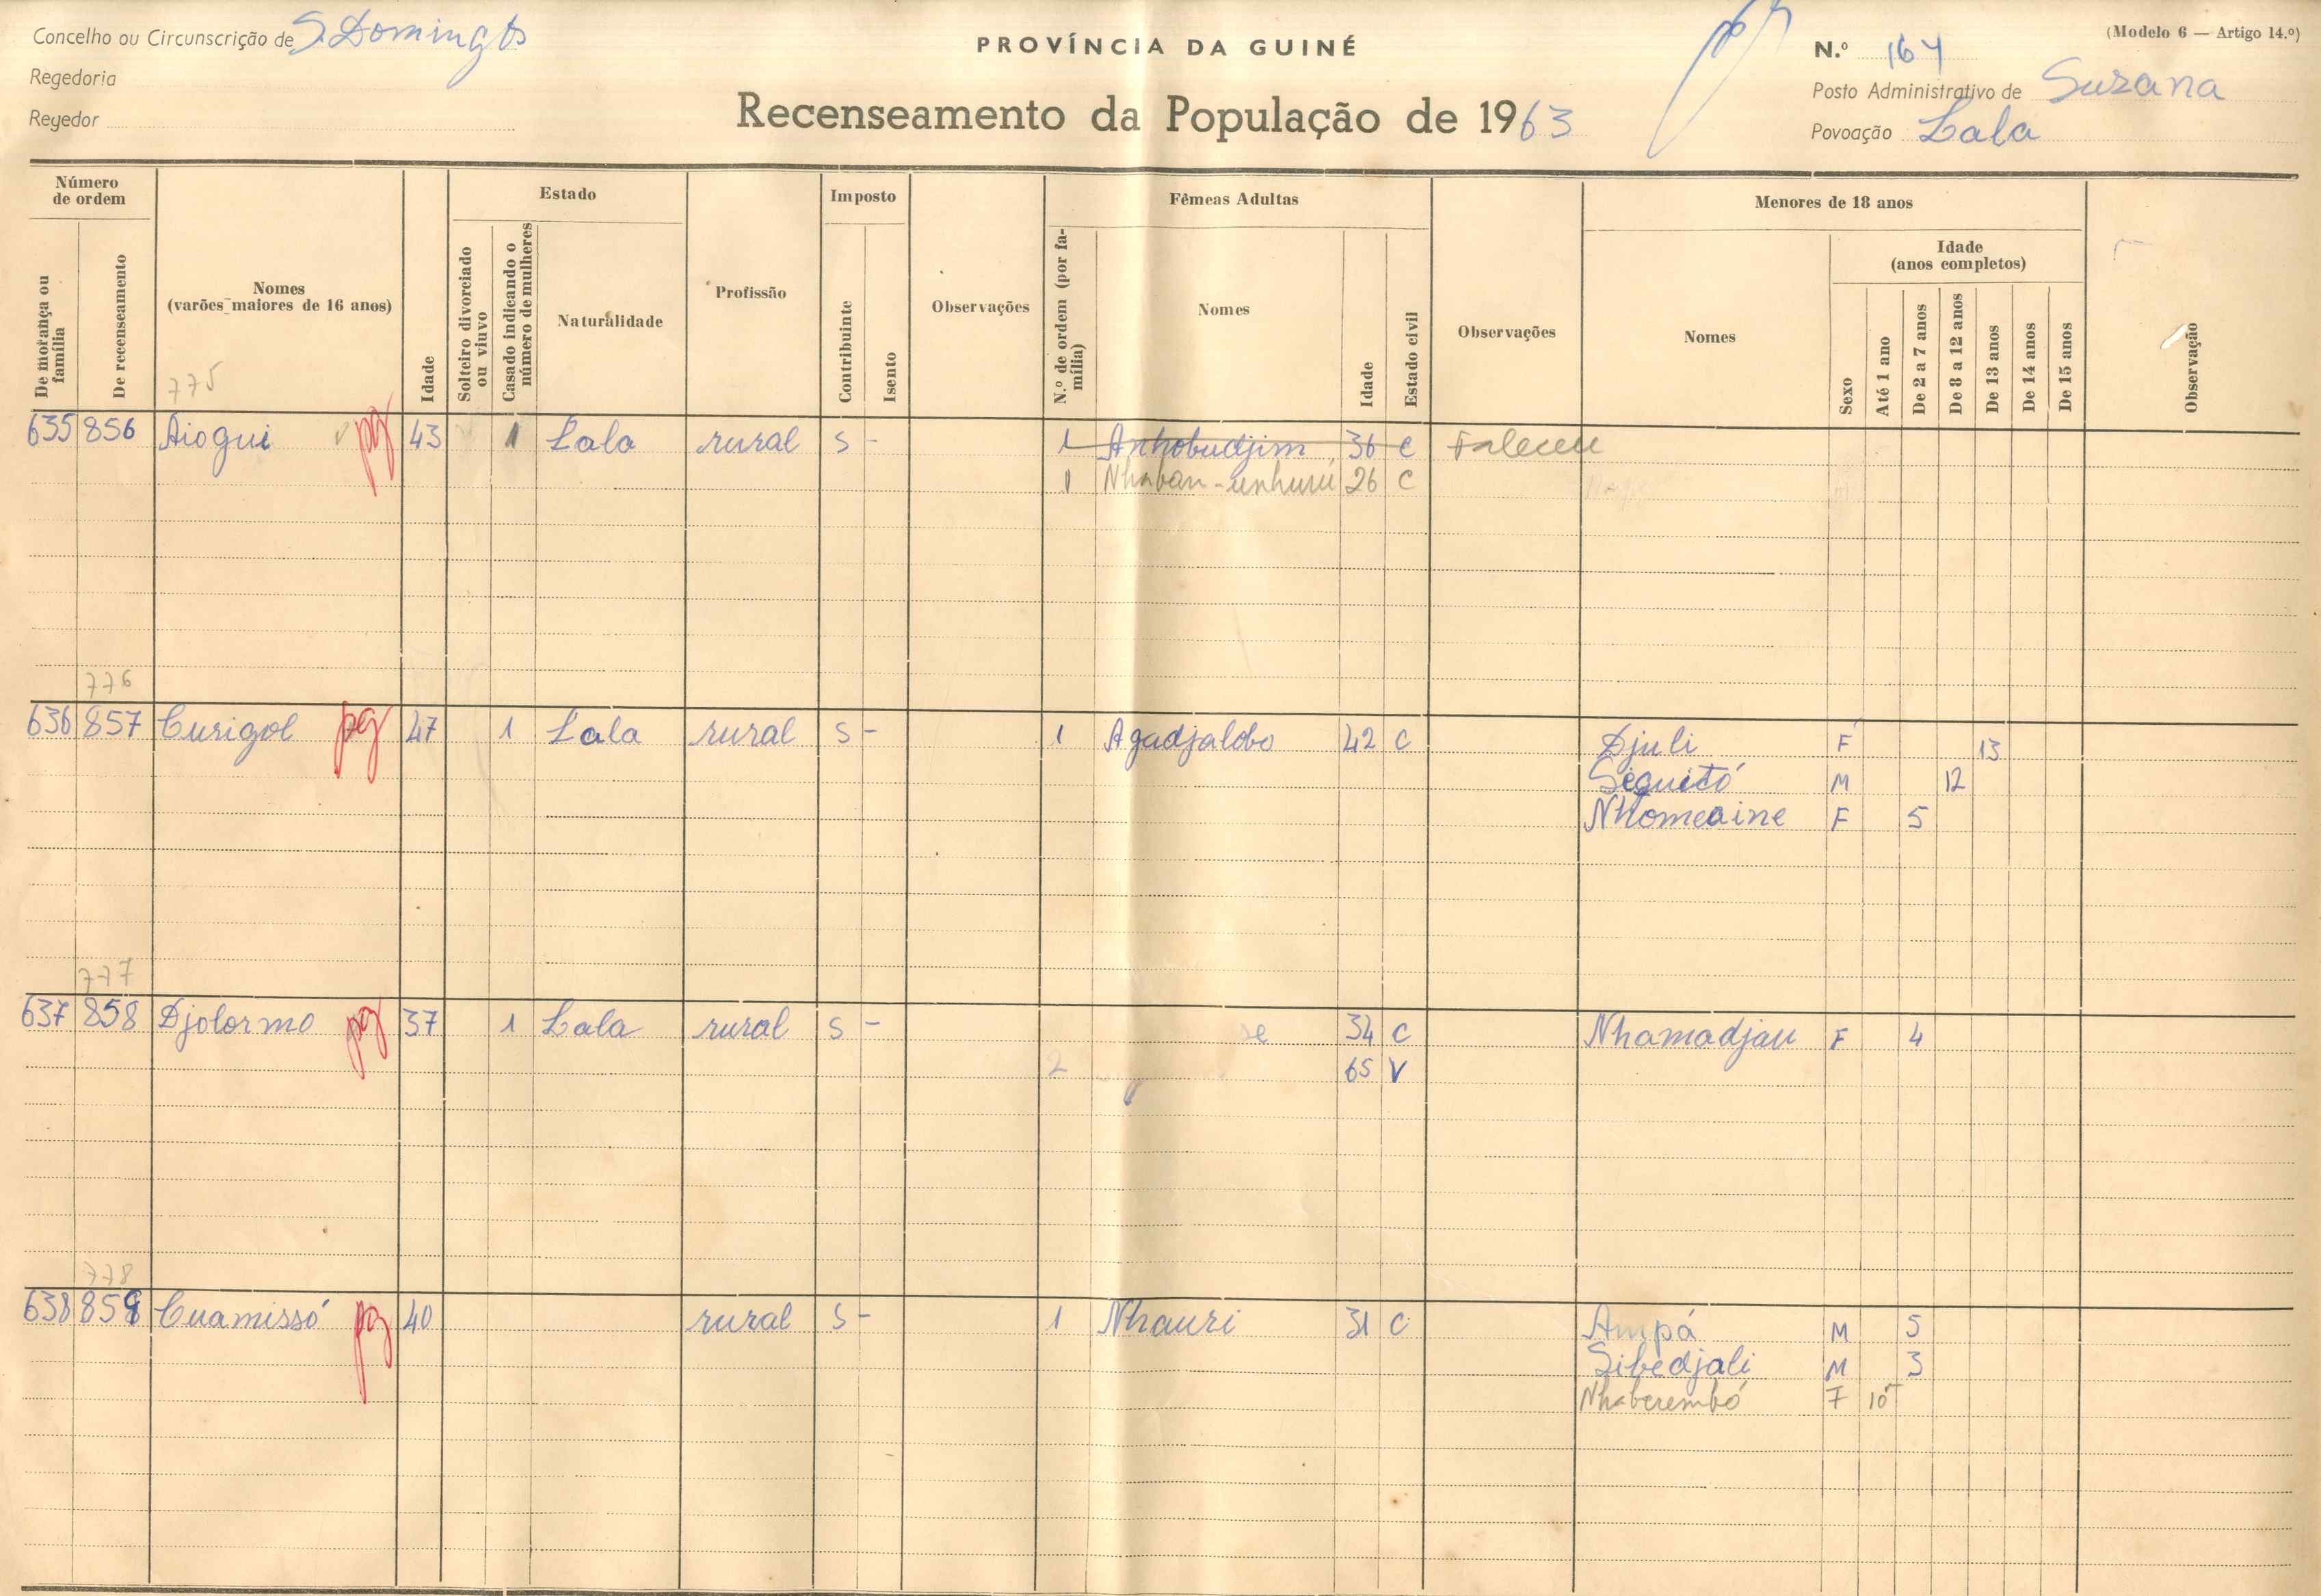 Concelho ou Circunscrição de S. Domingos
Regedoria
Regedor
PROVÍNCIA DA GUINÉ
Recenseamento da População de 1963
(Modelo 6 — Artigo 14.º)
N.º 164
Posto Administrativo de Suzana
Povoação Lala
Número de ordem
De morança ou família
De recenseamento
Nomes (varões maiores de 16 anos)
Idade
Estado
Solteiro divorciado ou viuvo
Casado indicando o número de mulheres
Naturalidade
Profissão
Imposto
Contribuinte
Isento
Observações
Fêmeas Adultas
N.º de ordem (por família)
Nomes
Idade
Estado civil
Observações
Menores de 18 anos
Nomes
Sexo
Idade (anos completos)
Até 1 ano
De 2 a 7 anos
De 8 a 12 anos
De 13 anos
De 14 anos
De 15 anos
Observação
775
635 856 Aiogui pg 43 1 Lala rural S - 1 Anhobudjim 36 C Faleceu
1 Nhaban-unhurú 26 C
776
636 857 Curigol pg 47 1 Lala rural S - 1 Agadjalobo 42 C Djuli F 13
Siquitó M 12
Nhomeaine F 5
777
637 858 Djolormo pg 37 1 Lala rural S - se 34 C Nhamadjau F 4
2 65 V
778
638 859 Cuamissó pg 40 rural S - 1 Nhauri 31 C Ampá M 5
Sibedjali M 3
Nhaberembó F 10